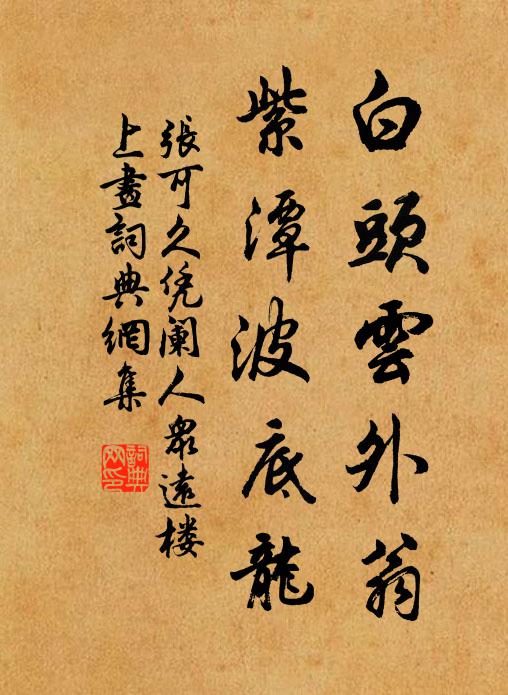 白頭雲外翁
紫潭波底龍
張可久凭闌人眾遠樓
上畫詞典網集
詞典網印